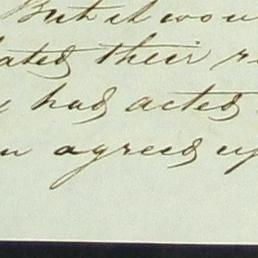 But it wou
ated their r
had acted
agreed up